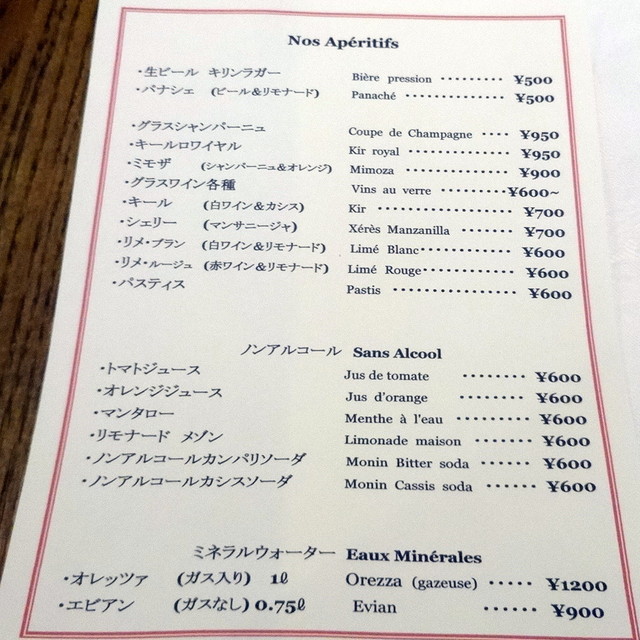 Nos Apéritifs
・生ビール キリンラガー Bière pression ········· ¥500
・パナシェ (ビール&リモナード) Panaché ············ ¥500
・グラスシャンパーニュ Coupe de Champagne ···· ¥950
・キールロワイヤル Kir royal ·············· ¥950
・ミモザ (シャンパーニュ&オレンジ) Mimoza ·············· ¥900
・グラスワイン各種 Vins au verre ·········¥600~
・キール (白ワイン&カシス) Kir ···················· ¥700
・シェリー (マンサニージャ) Xérès Manzanilla ······· ¥700
・リメ・ブラン (白ワイン&リモナード) Limé Blanc············ ¥600
・リメ・ルージュ (赤ワイン&リモナード) Limé Rouge············ ¥600
・パスティス Pastis ················ ¥600
ノンアルコール Sans Alcool
・トマトジュース Jus de tomate ········ ¥600
・オレンジジュース Jus d'orange ········ ¥600
・マンタロー Menthe à l'eau ········· ¥600
・リモナード メゾン Limonade maison ······· ¥600
・ノンアルコールカンパリソーダ Monin Bitter soda ······ ¥600
・ノンアルコールカシスソーダ Monin Cassis soda ······ ¥600
ミネラルウォーター Eaux Minérales
・オレッツァ (ガス入り) 1ℓ Orezza (gazeuse) ····· ¥1200
・エビアン (ガスなし) 0.75ℓ Evian ······ ¥900